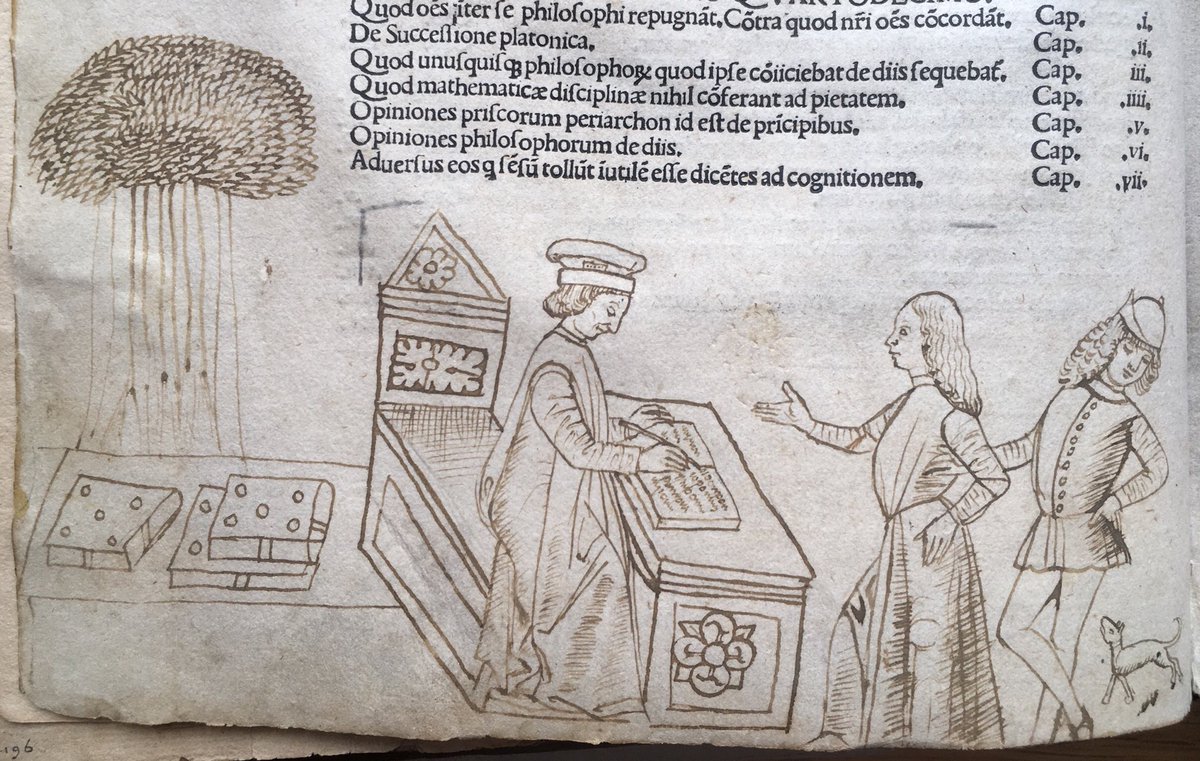 QVARTODECIMO.
Quod oēs īter ſe philoſophi repugnāt. Cōtra quod nr̄i oēs cōcordāt. Cap. .i.
De Succeſſione platonica. Cap. .ii.
Quod unuſquiſqꝫ philoſophoꝝ quod ipſe cōiiciebat de diis ſequebat̄. Cap. iii.
Quod mathematicæ diſciplinæ nihil cōferant ad pietatem. Cap. .iiii.
Opiniones priſcorum periarchon id eſt de prīcipibus. Cap. .v.
Opiniones philoſophorum de diis. Cap. .vi.
Aduerſus eos q ſēſū tollūt īutilē eſſe dicētes ad cognitionem. Cap. .vii.
196